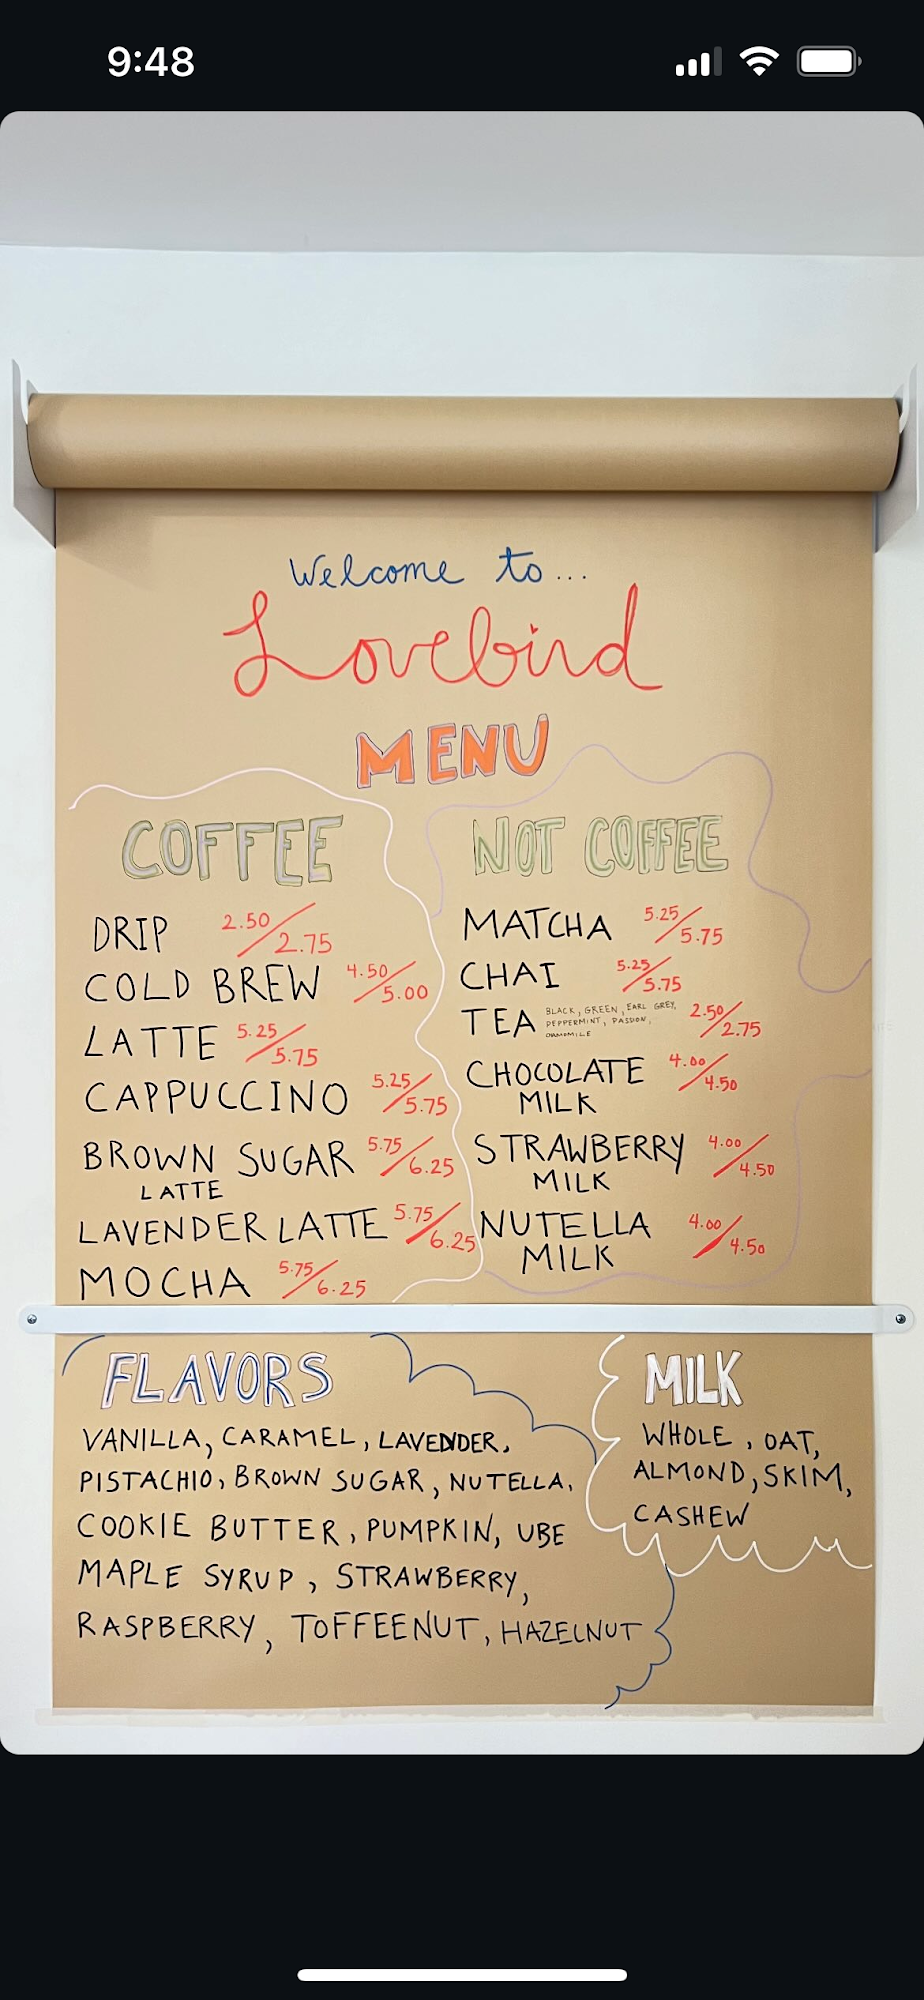 9:48
Welcome to...
Lovebird
MENU
COFFEE
DRIP 2.50/2.75
COLD BREW 4.50/5.00
LATTE 5.25/5.75
CAPPUCCINO 5.25/5.75
BROWN SUGAR 5.75/6.25
LATTE
LAVENDER LATTE 5.75/6.25
MOCHA 5.75/6.25
NOT COFFEE
MATCHA 5.25/5.75
CHAI 5.25/5.75
TEA BLACK, GREEN, EARL GREY, 2.50/2.75
PEPPERMINT, PASSION,
CHOCOLATE 4.00/4.50
MILK
STRAWBERRY 4.00/4.50
MILK
NUTELLA 4.00/4.50
MILK
FLAVORS
VANILLA, CARAMEL, LAVENDER,
PISTACHIO, BROWN SUGAR, NUTELLA,
COOKIE BUTTER, PUMPKIN, UBE
MAPLE SYRUP, STRAWBERRY,
RASPBERRY, TOFFEENUT, HAZELNUT
MILK
WHOLE, OAT,
ALMOND, SKIM,
CASHEW